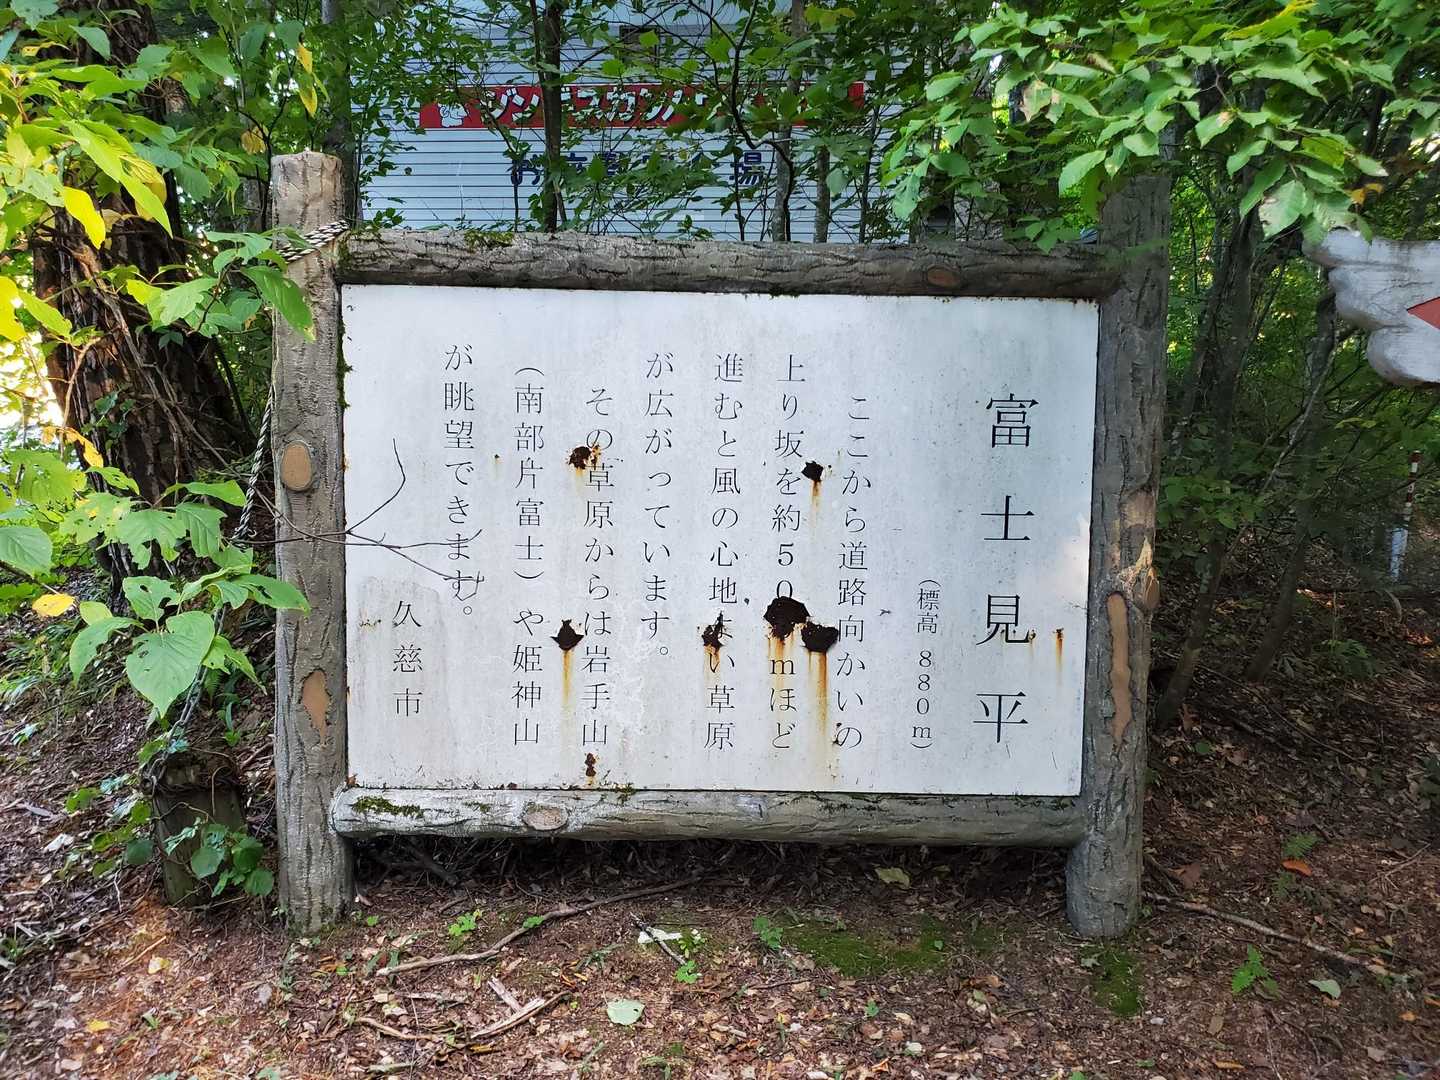 ジンギスカン
お
場
富士見平
(標高 880m)
ここから道路向かいの
上り坂を約50mほど
進むと風の心地よい草原
が広がっています。
その草原からは岩手山
(南部片富士)や姫神山
が眺望できます。
久慈市